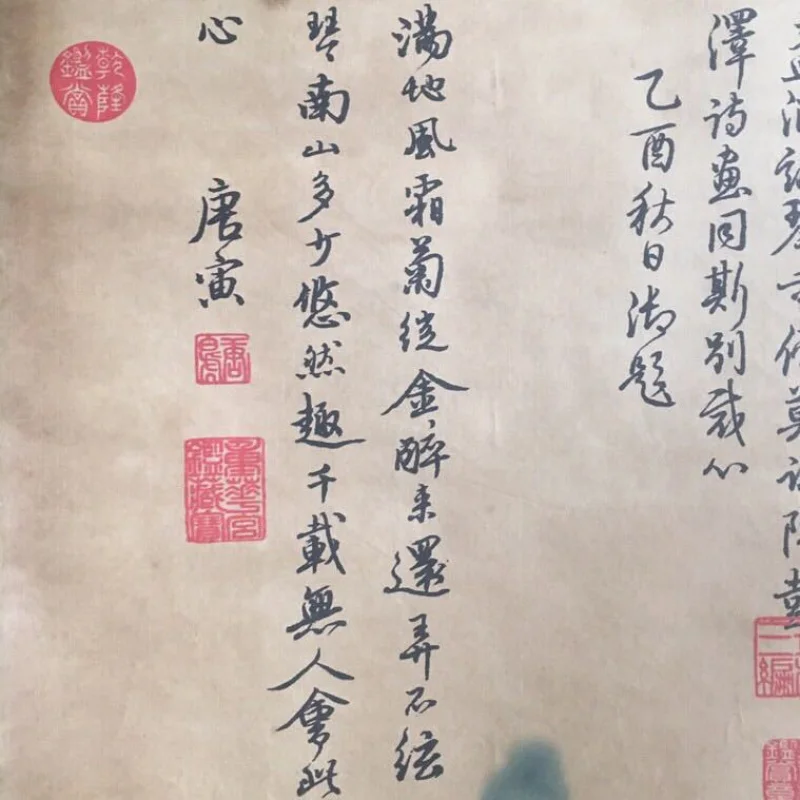 琴何莫
澤詩畫同斯別裁心
乙酉秋日御題
滿地風霜菊綻金醉來還弄不絃
琴南山多少悠然趣千載無人會此
心
唐寅
重華宮
鑑藏寶
乾隆
鑑賞